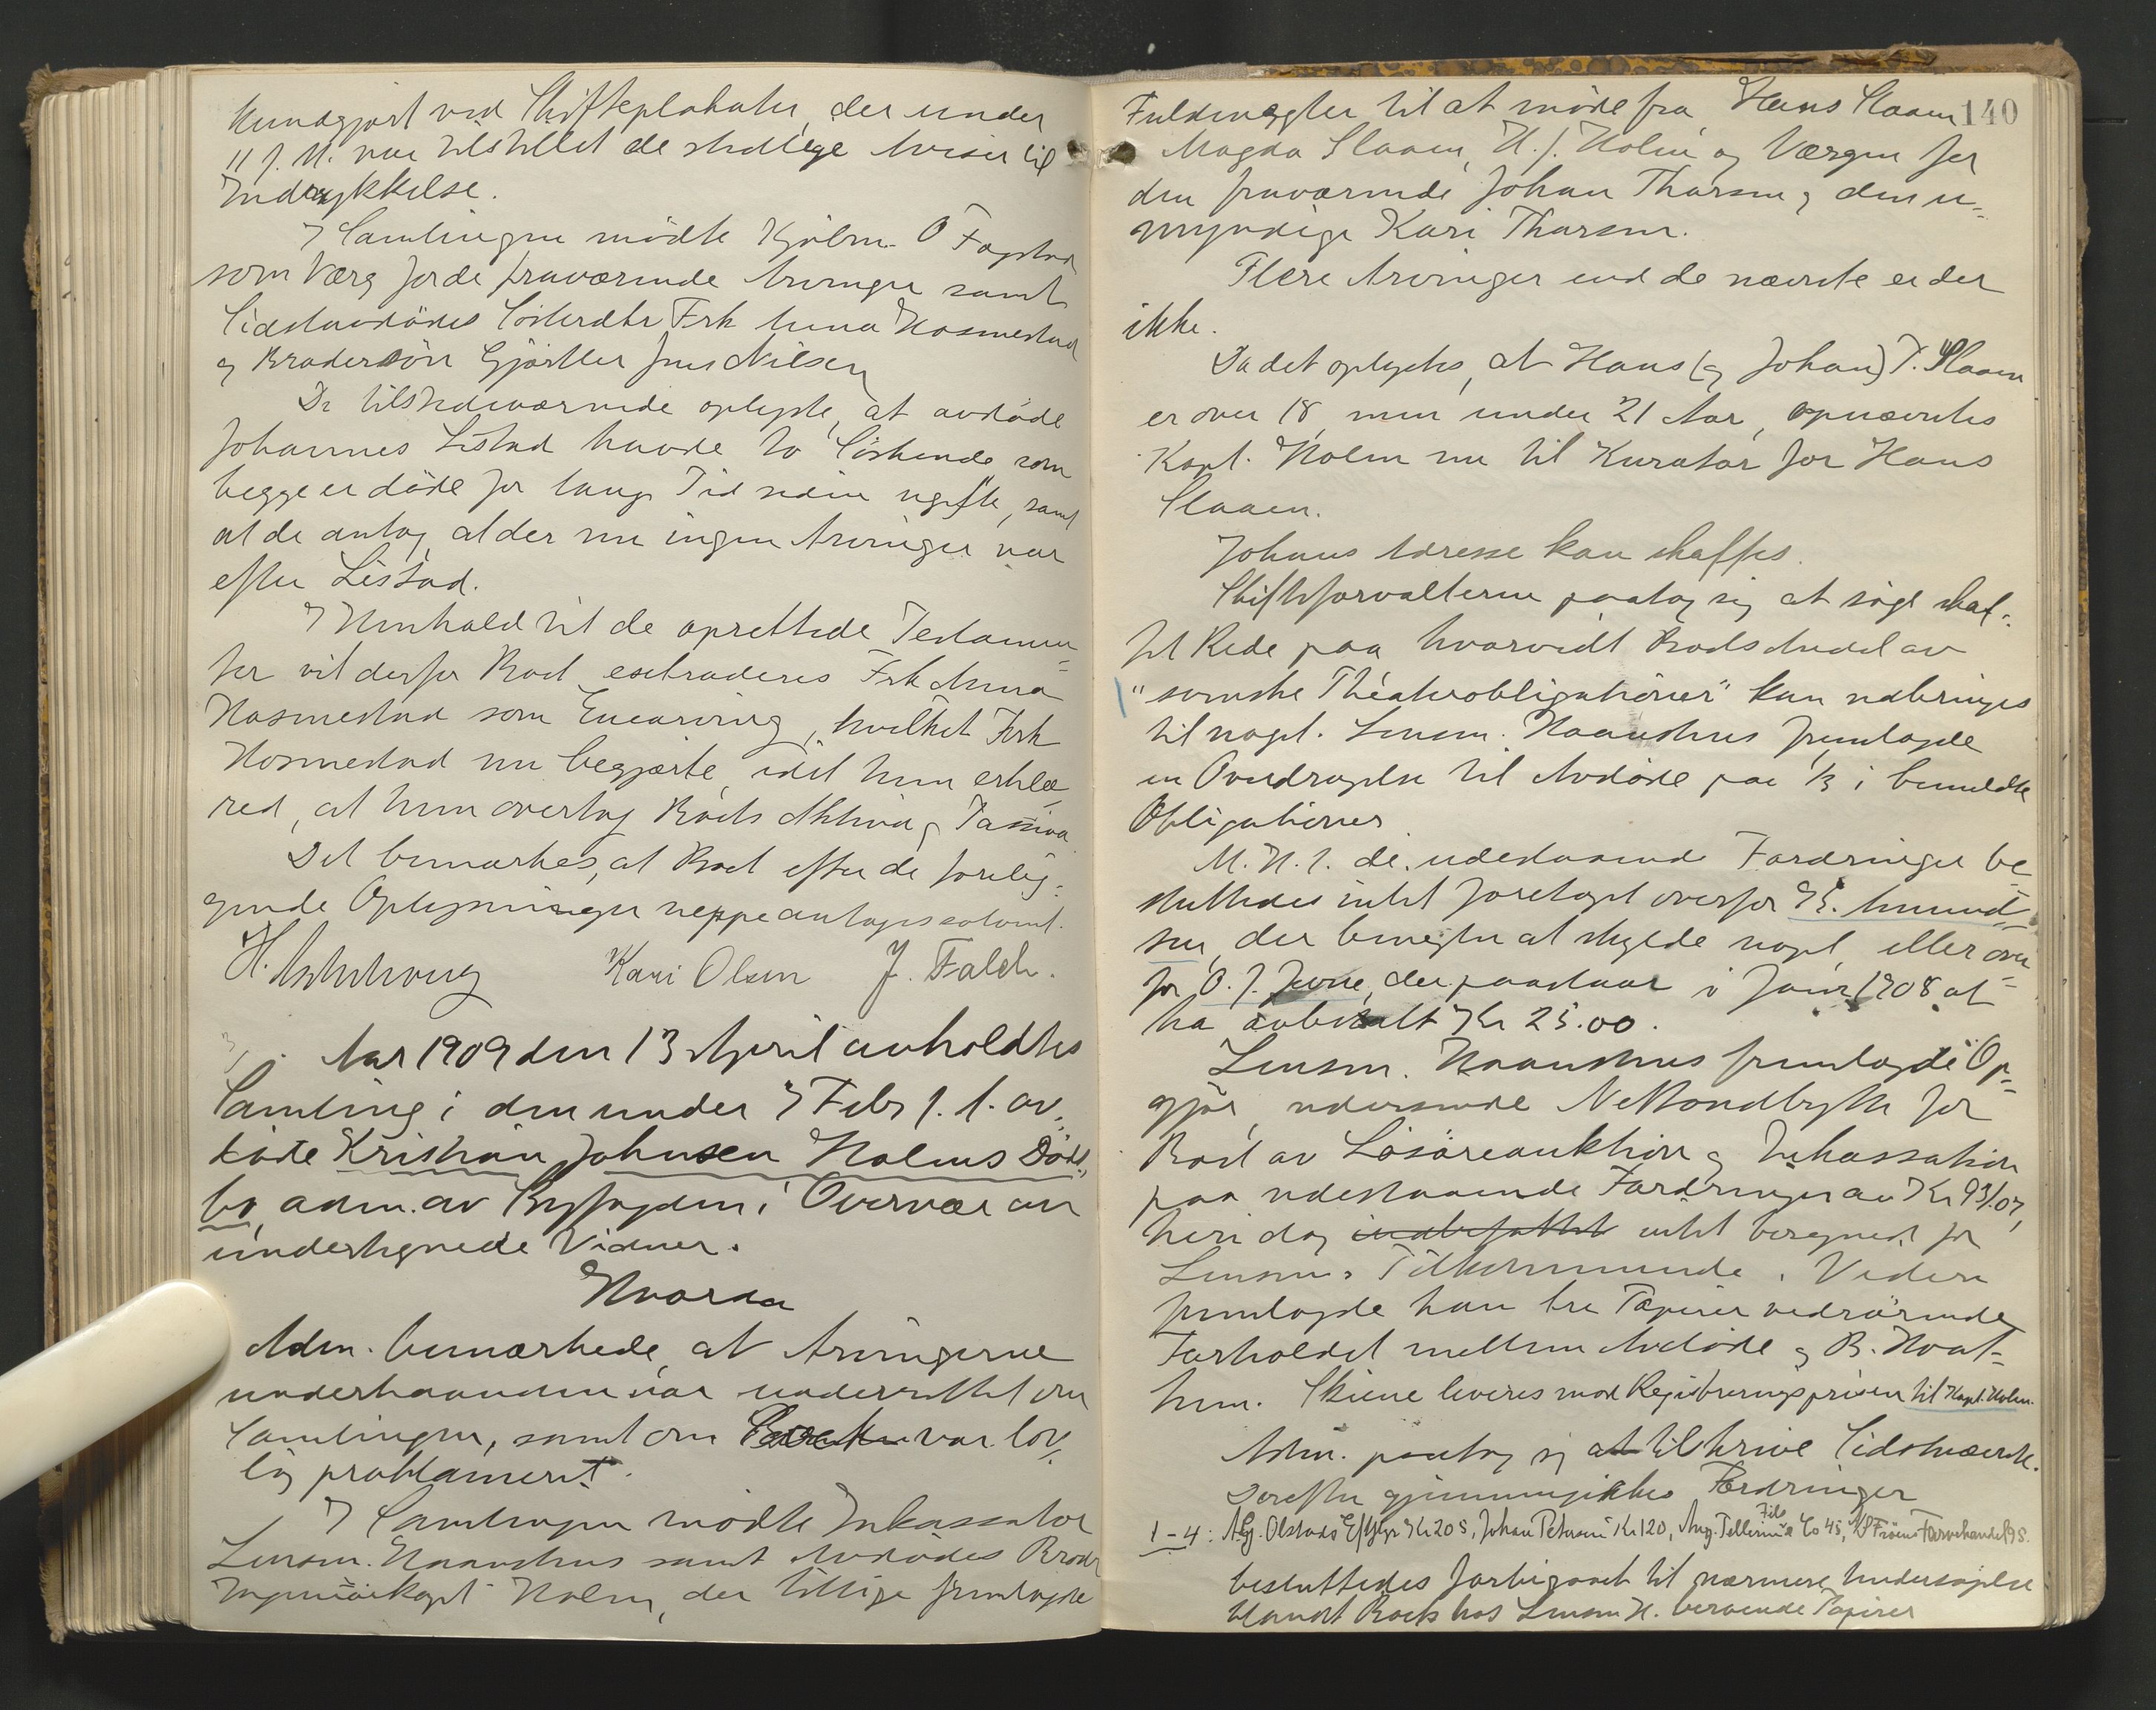 kundgjort ved Skifteplakater, der under
11 f. M. var tilstillet de stedlige Aviser til
Indrykkelse.
I Samlingen mødte Kjøbm. O Fagstad
som Værg for de fraværende Arvinger samt
Sidstavdødes Søsterdtr Frk Anna Hosmestad
og Brodersøn Gjørtler Jens Nilsen
De tilstedeværende oplyste, at avdøde
Johannes Listad havde to Søskende, som
begge er døde for lang Tid siden ugifte, samt
at de antog, at der nu ingen Arvinger var
efter Listad.
I Henhold til de oprettede Testamen=
ter vil derfor Boet extraderes Frk Anna
Hosmestad som Enearving, hvilket Frk
Hosmestad nu begjærte, idet hun erklæ=
red, at hun overtog Boets Aktiva og Passiva
Det bemærkes, at Boet efter de forelig=
gende Oplysninger neppe antages solvent.
Kari Olsen J. Falch.
Aar 1909 den 13 April avholdtes
Samling i den under 7 Febr f. A. av=
døde Kristian Johnsen Holms Døds=
bo, adm. av Byfogden i Overvær av
undertegnede Vidner.
Hvorda
Adm. bemærkede, at Arvingerne
underhaanden var underrettet om
Samlingen, samt om var lov=
lig proklameret.
I Samlingen mødte Inkassator
Lensm. Haanshus samt Avdødes Broder
Ingeniørkapt Holm, der tillige fremlagde
140
Fuldmagter til at møde fra Hans Slaaen
Magda Slaaen, H. J. Holm og Værgen for
den fraværende Johan Tharsen og den u=
myndige Kari Tharsen.
Flere Arvinger end de nævnte er der
ikke.
Da det oplystes, at Hans (og Johan) T. Slaaen
er over 18, men under 21 Aar, opnævntes
Kapt. Holm nu til Kurator for Hans
Slaaen.
Johans Adresse kan skaffes.
Skifteforvalteren paatog sig at søge skaf=
fet Rede paa hvorvidt Boets Andel av
"svenske Theaterobligationer" kan udbringes
til noget. Lensm. Haanshus fremlagde
en Overdragelse til Avdøde paa 1/3 i bemeldte
Obligationer
M. H. t. de udestaaende Fordringer be=
sluttedes intet foretaget overfor E. Amund=
sen, der benegter at skylde noget, eller over=
for O. J. der paastaar i Juni 1908 at
ha avbetalt Kr 25.00.
Lensm. Haanshus fremlagde Op=
gjør, udvisende Nettoudbytte for
Boet av Løsøreauktion og Inkassation
paa udestaaende Fordringer av Kr 931.07,
heri dog indbefattet intet beregnet for
Lensm.s Tilkommende. Videre
fremlagde han tre Papirer vedrørende
Forholdet mellem Avdøde og B. Hval=
Skiene leveres mod Registreringsprisen til Kapt. Holm.
Adm. paatog sig at tilskrive Sidstnævnte.
Derefter gjennemgikkes Fordringer
1-4: Alf. Olstads Eftflgr Kr 205, Johan Petersen Kr 120, Aug. Pellerin Fils & Co 45, Frøens Farvehandel 98.
besluttedes forbigaaet til nærmere Undersøgelse
blandt Boets hos Lensm H. beroende Papirer